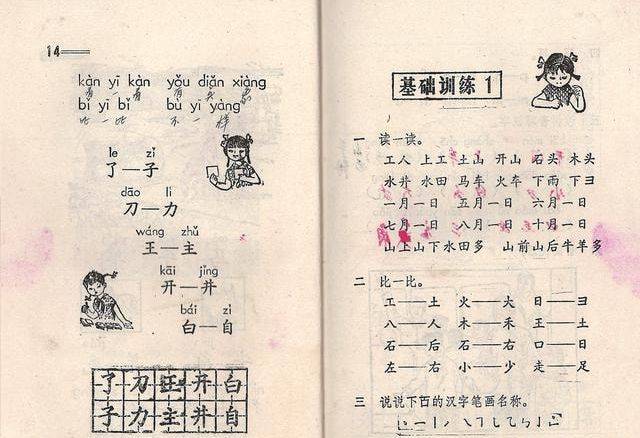 14
kàn yī kàn yǒu diǎn xiàng
看 一 看 有 点
bǐ yī bǐ bù yī yàng
比 一 比 不 一 样
le zǐ
了——子
dāo lì
刀——力
wáng zhǔ
王——主
kāi jǐng
开——井
bái zì
白——自
了 刀 王 开 白
子 力 主 井 自
基础训练1
一 读一读。
工人 上工 土山 开山 石头 木头
水井 水田 马车 火车 下雨 下
一月一日 五月一日 六月一日
七月一日 八月一日 十月一日
山上山下水田多 山前山后牛羊多
二 比一比。
工——土 火——大 日——
八——人 木——禾 王——土
石——后 石——右 口——日
左——右 小——少 走——足
三 说说下百的汉字笔画名称。